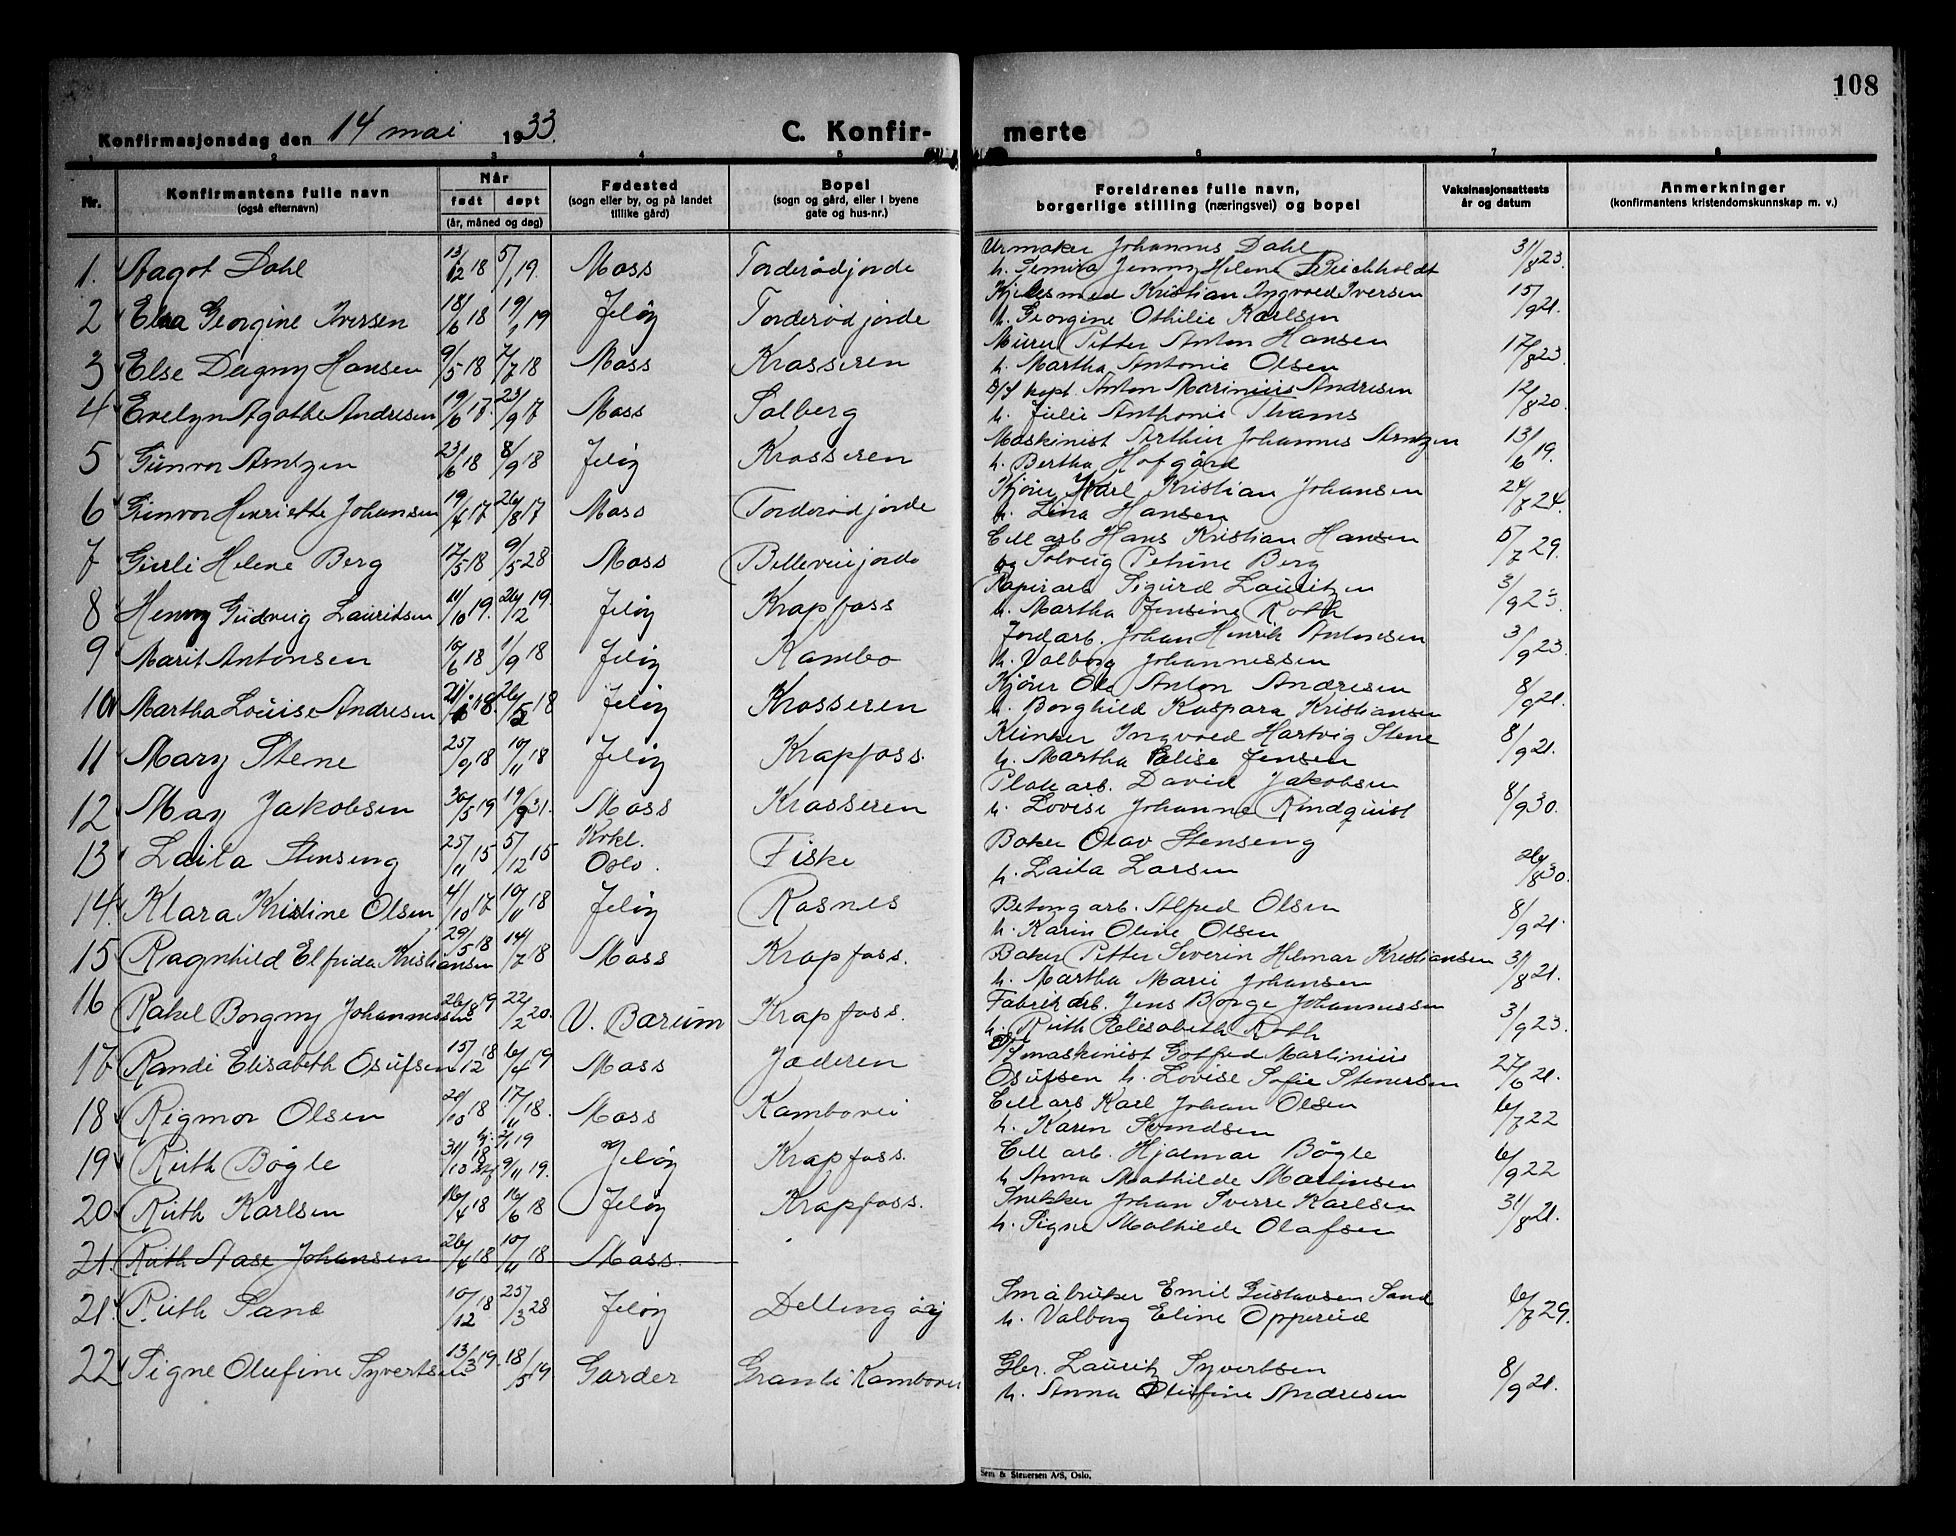 108
Konfirmasjonsdag den 14 mai 1933. C. Konfir- merte
1 2 3 4 5 6 7 8
Nr. Konfirmantens fulle navn (også efternavn) Når født døpt (år, måned og dag) Fødested (sogn eller by, og på landet tillike gård) Bopel (sogn og gård, eller i byene gate og hus-nr.) Foreldrenes fulle navn, borgerlige stilling (næringsvei) og bopel Vaksinasjonsattests år og datum Anmerkninger (konfirmantens kristendomskunnskap m. v.)
1. Aagot Dahl 13/12 18 5/1 19. Moss Torderødjorde Urmaker Johannes Dahl 31/8 23.
h. Jenny Helene
2 Elsa Georgine Iversen 18/6 18 19/1 19 Jeløy Torderødjorde Kjelesmed Kristian Ingvald Iversen 15/9 21.
h. Georgine Othilie Karlsen
3 Else Dagny Hansen 9/5 18 7/7 18 Moss Krosseren Murer Petter Anton Hansen 17/8 23.
h. Martha Antonie Olsen
4 Evelyn Agathe Andresen 19/6 17. 23/9 17 Moss Solberg D/S kapt. Anton Marinius Andresen 12/8 20.
h. Julie Anthonie Thams
5 Gunvor Arntzen 23/6 18 8/9 18 Jeløy Krosseren Maskinist Arthur Johannes Arntzen 13/6 19.
h. Bertha Hofgård
6 Gunvor Henriette Johansen 19/4 17 26/8 17 Moss Torderødjorde Kjører Karl Kristian Johansen 24/7 24.
h. Lina Hansen
7 Gurli Helene Berg 17/5 18 9/5 28 Moss Bellevuejorde Cell arb Hans Kristian Hansen 5/7 29.
og Solveig Petrine Berg
8 Henny Gudveig Lauritsen 11/10 19. 26/12 19. Jeløy Krapfoss Papirarb. Sigurd Lauritzen 3/9 23.
h. Martha Jensine Roth
9 Marit Antonsen 10/6 18 1/9 18 Jeløy Kambo Jordarb. Johan Henrik Antonsen 3/9 23.
h. Valborg Johannessen
10 Martha Louise Andresen 18. 26/5 18 Jeløy Krosseren Kjører Ole Anton Andresen 8/9 21.
h. Borghild Kaspara Kristiansen
11 Mary Stene 25/9 18 10/11 18 Jeløy Krapfoss. Klinker Ingvald Hartvig Stene 8/9 21.
h. Martha Elise Jensen
12 May Jakobsen 30/5 19 19/9 31. Moss Krosseren Platearb. David Jakobsen 8/9 30.
h. Lovise Johanne Rindquist
13 Laila Stenseng 25/11 15 5/12 15 Krkl. Oslo. Fiske Baker Olav Stenseng 26/8 30.
h. Laila Larsen
14. Klara Kristine Olsen 4/10 17 10/11 18 Jeløy Rosnes Betongarb. Alfred Olsen 8/9 21.
h. Karin Oline Olsen
15 Ragnhild Elfrida Kristiansen 29/5 18 14/7 18 Moss Krapfoss. Baker Petter Severin Helmar Kristiansen 31/8 21.
h. Martha Marie Johansen
16 Rakel Borgny Johannessen 26/8 19 22/2 20. V. Bærum Krapfoss. Fabrikarb. Jens Borge Johannessen 3/9 23.
h. Ruth Elisabeth Roth
17 Randi Elisabeth Osufsen 15/12 18 6/4 19 Moss Jæderen maskinist Gotfred Martinius 27/6 21.
Osufsen h. Lovise Sofie Stenersen
18 Rigmor Olsen 20/10 18 17/11 18. Moss Kambovei Cell arb Karl Johan Olsen 6/7 22
h. Karen Svendsen
19 Ruth Bøgle 31/10 18 2/1 19 9/11 19. Jeløy Krapfoss. Cell arb. Hjalmar Bøgle 6/9 22
h Anna Mathilde Martinsen
20 Ruth Karlsen 16/4 18 16/6 18 Jeløy Krapfoss. Snekker Johan Sverre Karlsen 31/8 21.
h. Signe Mathilde Olafsen
21. Ruth Aase Johansen 26/4 18 10/11 18 Moss.
21. Ruth Sand 10/12 18 25/3 28 Jeløy Delling Småbruker Emil Gustavsen Sand 6/7 29.
h. Valborg Eline Opperud
22 Signe Olufine Syvertsen 13/3 19. 18/5 19 Garder Granli Kambovei Gbr. Lauritz Syvertsen 8/9 21.
h. Anna Olufine Andresen
Sem & Stenersen A/S, Oslo.